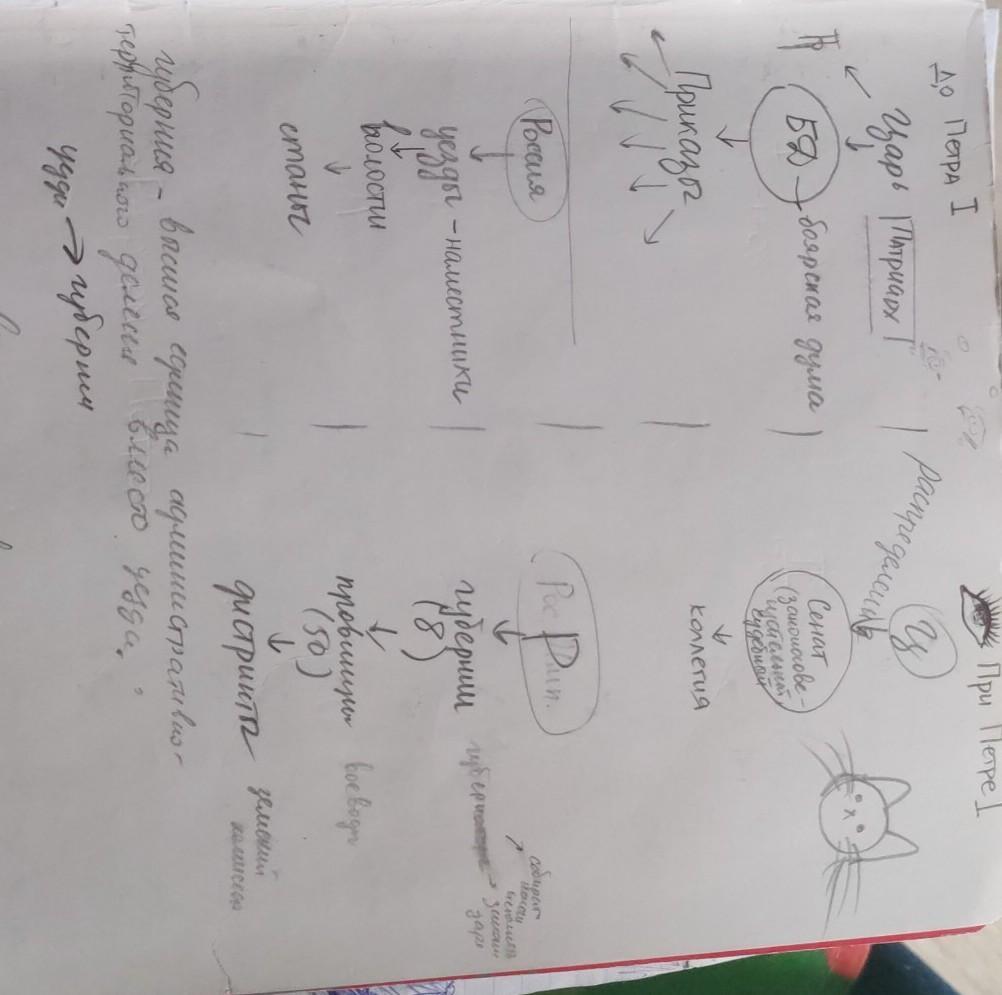 До Петра I
Царь Патриарх
БД → боярская дума
Приказы
Россия
уезды - наместники
волости
станы
При Петре I
распределить
Ц
Сенат
(законосове-
щательный
судебной)
коллегия
Рос Имп.
губернии
(8)
провинции воеводы
(50)
дистрикты земский
губерния - высшая единица административно-
территориального деления вместо уезда.
уезды → губернии